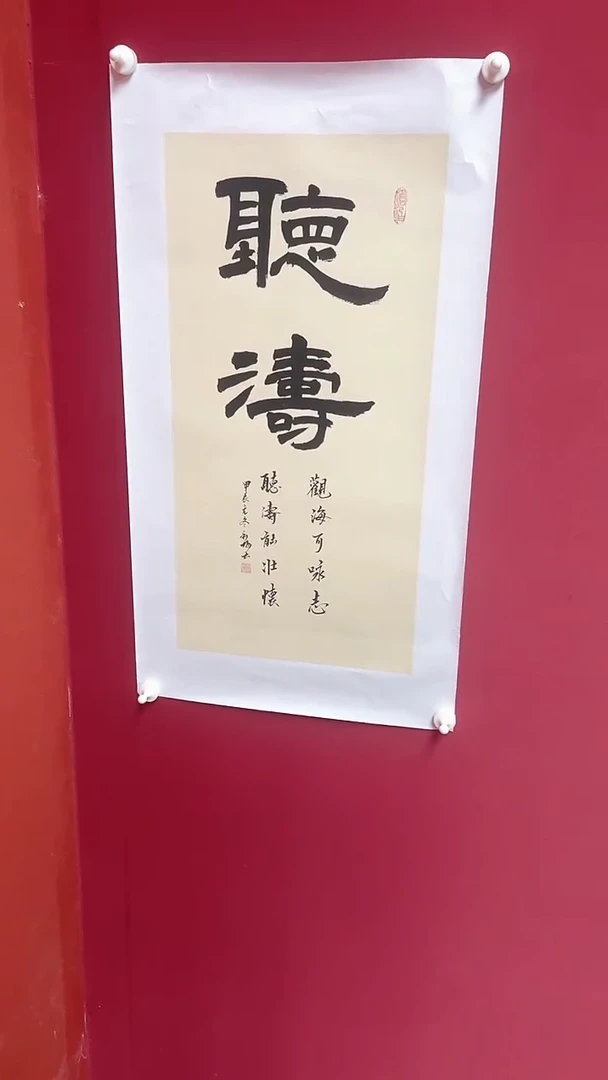 聽濤
觀海可咏志
聽濤能壯懷
甲辰之冬